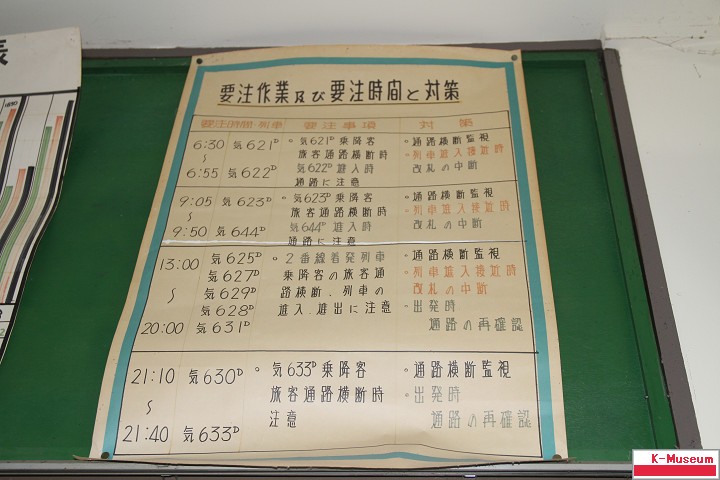 表
要注作業及び要注時間と対策
要注時間・列車 要注事項 対策
6:30 気621D ・気621D乗降客 ・通路横断監視
～ 旅客通路横断時 ・列車進入接近時
6:55 気622D 気622D進入時 改札の中断
通路に注意
9:05 気623D ・気623D乗降客 ・通路横断監視
～ 旅客通路横断時 ・列車進入接近時
9:50 気644D 気644D進入時 改札の中断
通路に注意
13:00 気625D ・2番線着発列車 ・通路横断監視
気627D 乗降客の旅客通 ・列車進入接近時
～ 気629D 路横断.列車の 改札の中断
気628D 進入.進出に注意 ・出発時
20:00 気631D 通路の再確認
21:10 気630D ・気633D乗降客 ・通路横断監視
～ 旅客通路横断時 ・出発時
21:40 気633D 注意 通路の再確認
K-Museum